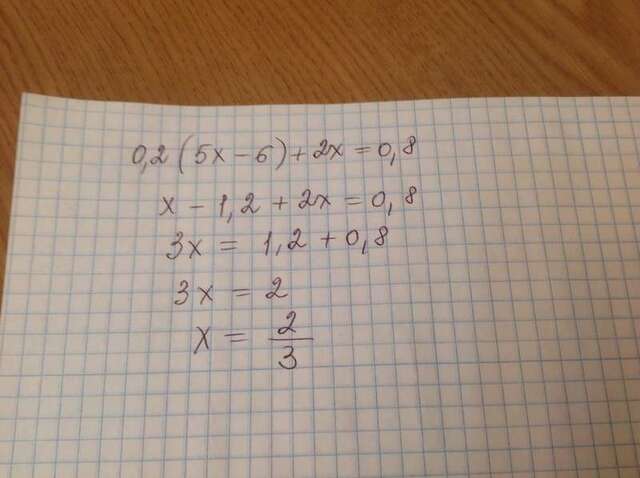 0,2(5x-6)+2x=0,8
x-1,2+2x=0,8
3x=1,2+0,8
3x=2
x=2/3